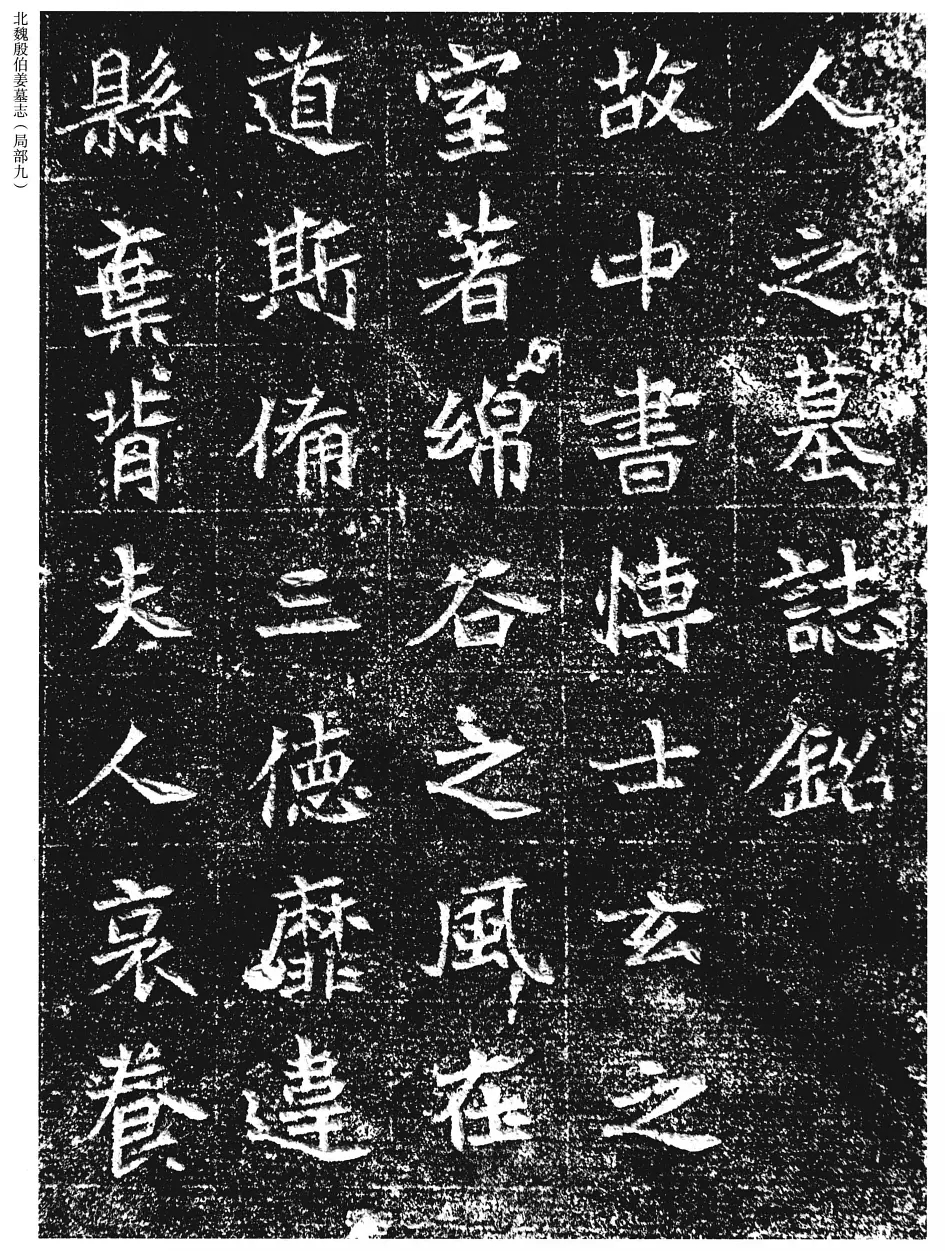 人之墓誌銘
故中書博士玄之
室著綿谷之風在
道斯備三德靡違
縣棄背夫人哀養
北魏殷伯姜墓志（局部九）